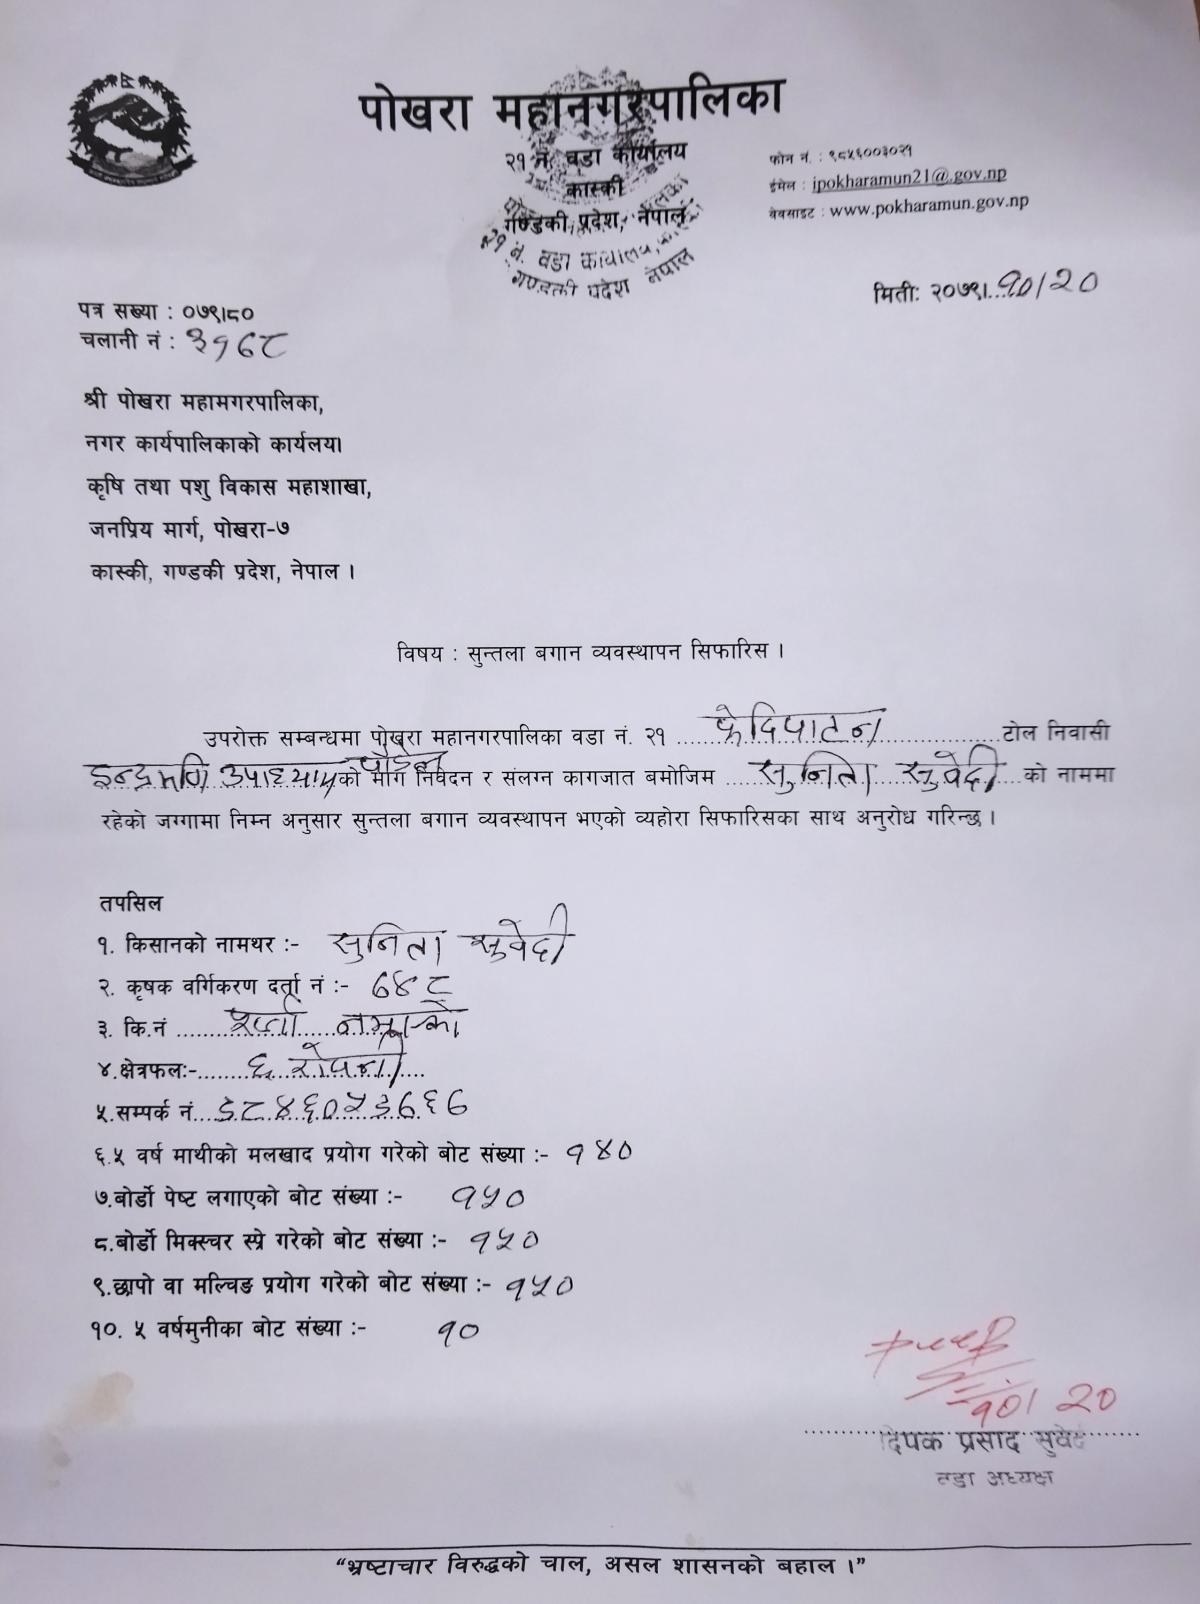 पोखरा महानगरपालिका
२१ नं. वडा कार्यालय
कास्की
गण्डकी प्रदेश, नेपाल
फोन नं. : ९८५६००३०२१
ईमेल : ipokharamun21@.gov.np
वेवसाइट : www.pokharamun.gov.np
२१ नं. वडा कार्यालय,
गण्डकी प्रदेश नेपाल
मिती: २०७९।१०/२०
पत्र सख्या : ०७९।८०
चलानी नं : ३१७८
श्री पोखरा महामगरपालिका,
नगर कार्यपालिकाको कार्यलय।
कृषि तथा पशु विकास महाशाखा,
जनप्रिय मार्ग, पोखरा-७
कास्की, गण्डकी प्रदेश, नेपाल ।
विषय : सुन्तला बगान व्यवस्थापन सिफारिस ।
उपरोक्त सम्बन्धमा पोखरा महानगरपालिका वडा नं. २१ फेदिपाटन टोल निवासी
इन्द्रमणि उपाध्याय पौडेल को माग निवेदन र संलग्न कागजात बमोजिम सुनिता सुवेदी को नाममा
रहेको जग्गामा निम्न अनुसार सुन्तला बगान व्यवस्थापन भएको व्यहोरा सिफारिसका साथ अनुरोध गरिन्छ ।
तपसिल
१. किसानको नामथर :- सुनिता सुवेदी
२. कृषक वर्गिकरण दर्ता नं :- ७४८
३. कि.नं
४.क्षेत्रफल:- ६ रोपनी
५.सम्पर्क नं. ९८४६०५३७६७
६.५ वर्ष माथीको मलखाद प्रयोग गरेको बोट संख्या :- १४०
७.बोर्डो पेष्ट लगाएको बोट संख्या :- १५०
८.बोर्डो मिक्स्चर स्प्रे गरेको बोट संख्या :- १५०
९.छापो वा मल्चिङ प्रयोग गरेको बोट संख्या :- १५०
१०. ५ वर्षमुनीका बोट संख्या :- १०
१०। २०
दिपक प्रसाद सुवेदी
वडा अध्यक्ष
“भ्रष्टाचार विरुद्धको चाल, असल शासनको बहाल ।”